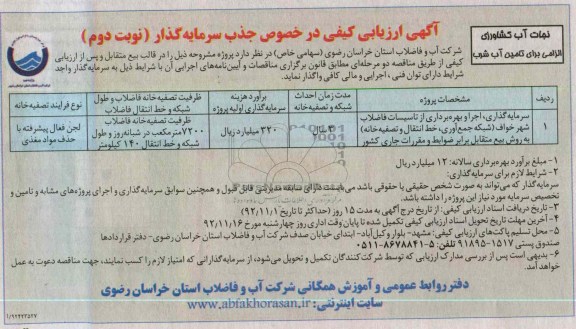 نجات آب کشاورزی
الزامی برای تامین آب شرب
آگهی ارزیابی کیفی در خصوص جذب سرمایه‌گذار (نوبت دوم)
شرکت آب و فاضلاب استان خراسان رضوی (سهامی خاص) در نظر دارد پروژه مشروحه ذیل را در قالب بیع متقابل و پس از ارزیابی
کیفی از طریق مناقصه دو مرحله‌ای مطابق قانون برگزاری مناقصات و آیین‌نامه‌های اجرایی آن با شرایط ذیل به سرمایه‌گذار واجد
شرایط دارای توان فنی، اجرایی و مالی کافی واگذار نماید.
ردیف
مشخصات پروژه
مدت زمان احداث شبکه و تصفیه‌خانه
برآورد هزینه سرمایه‌گذاری اولیه پروژه
ظرفیت تصفیه‌خانه فاضلاب و طول شبکه و خط انتقال فاضلاب
نوع فرایند تصفیه‌خانه
۱
سرمایه‌گذاری، اجرا و بهره‌برداری از تاسیسات فاضلاب
شهر خواف (شبکه جمع‌آوری، خط انتقال و تصفیه‌خانه)
به روش بیع متقابل برابر ضوابط و مقررات جاری کشور
سال
۳۲۰ میلیارد ریال
ظرفیت تصفیه‌خانه فاضلاب
۷۲۰۰ مترمکعب در شبانه‌روز و طول
شبکه و خط انتقال ۱۴۰ کیلومتر
لجن فعال پیشرفته با
حذف مواد مغذی
۱- مبلغ برآورد بهره‌برداری سالانه: ۱۲ میلیارد ریال
۲- شرایط لازم برای سرمایه‌گذاری:
سرمایه‌گذار که می‌تواند به صورت شخص حقیقی یا حقوقی باشد می‌بایست دارای سابقه مدیریتی قابل قبول و همچنین سوابق سرمایه‌گذاری و اجرای پروژه‌های مشابه و تامین و
تخصیص سرمایه مورد نیاز این پروژه را داشته باشد.
۳- تاریخ دریافت اسناد ارزیابی کیفی: از تاریخ درج آگهی به مدت ۱۵ روز (حداکثر تا تاریخ ۹۲/۱۱/۱)
۴- آخرین مهلت تاریخ تحویل اسناد ارزیابی کیفی تکمیل شده تا پایان وقت اداری روز چهارشنبه مورخ ۹۲/۱۱/۱۶
۵- محل تسلیم پاکت‌های ارزیابی کیفی: مشهد- بلوار وکیل‌آباد- ابتدای خیابان صدف شرکت آب و فاضلاب استان خراسان رضوی- دفتر قراردادها
صندوق پستی ۱۵۱۷-۹۱۸۹۵ تلفن: ۵-۸۶۷۸۸۴۱-۰۵۱۱
۶- بدیهی است پس از بررسی مدارک ارزیابی که توسط شرکت‌کنندگان تکمیل و تحویل می‌شود، از سرمایه‌گذارانی که امتیاز لازم را کسب نمایند، جهت مناقصه دعوت به عمل
خواهد آمد.
دفتر روابط عمومی و آموزش همگانی شرکت آب و فاضلاب استان خراسان رضوی
سایت اینترنتی: www.abfakhorasan.ir